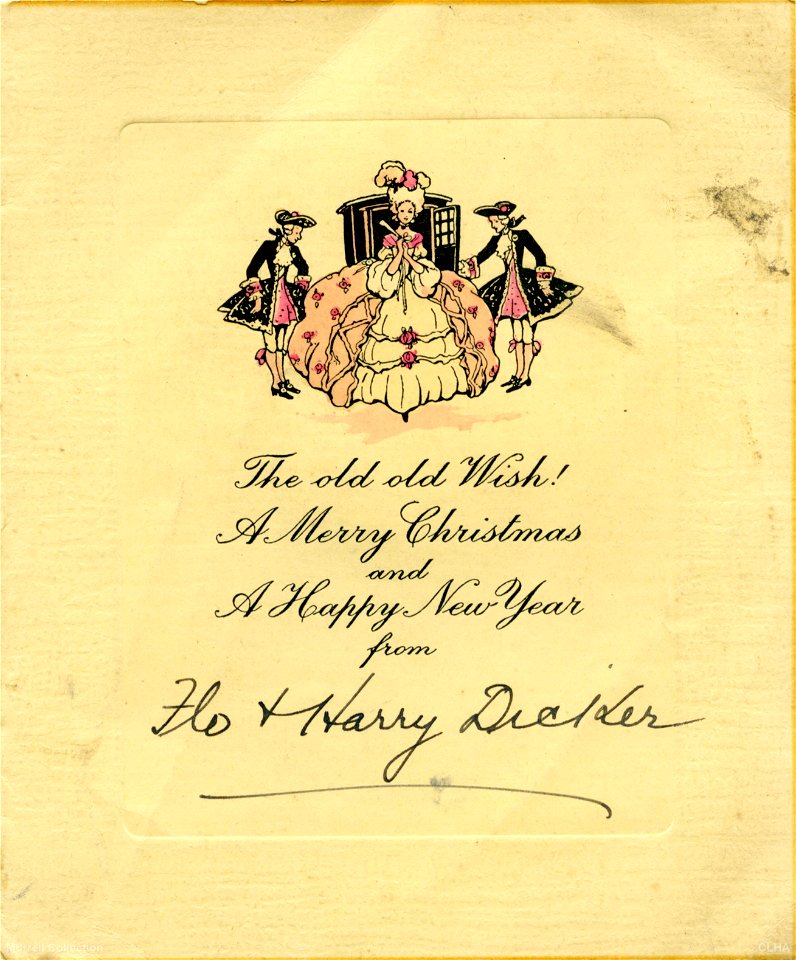 The old old Wish!
A Merry Christmas
and
A Happy New Year
from
Flo + Harry Dicker
Morrell Collection
CLHA